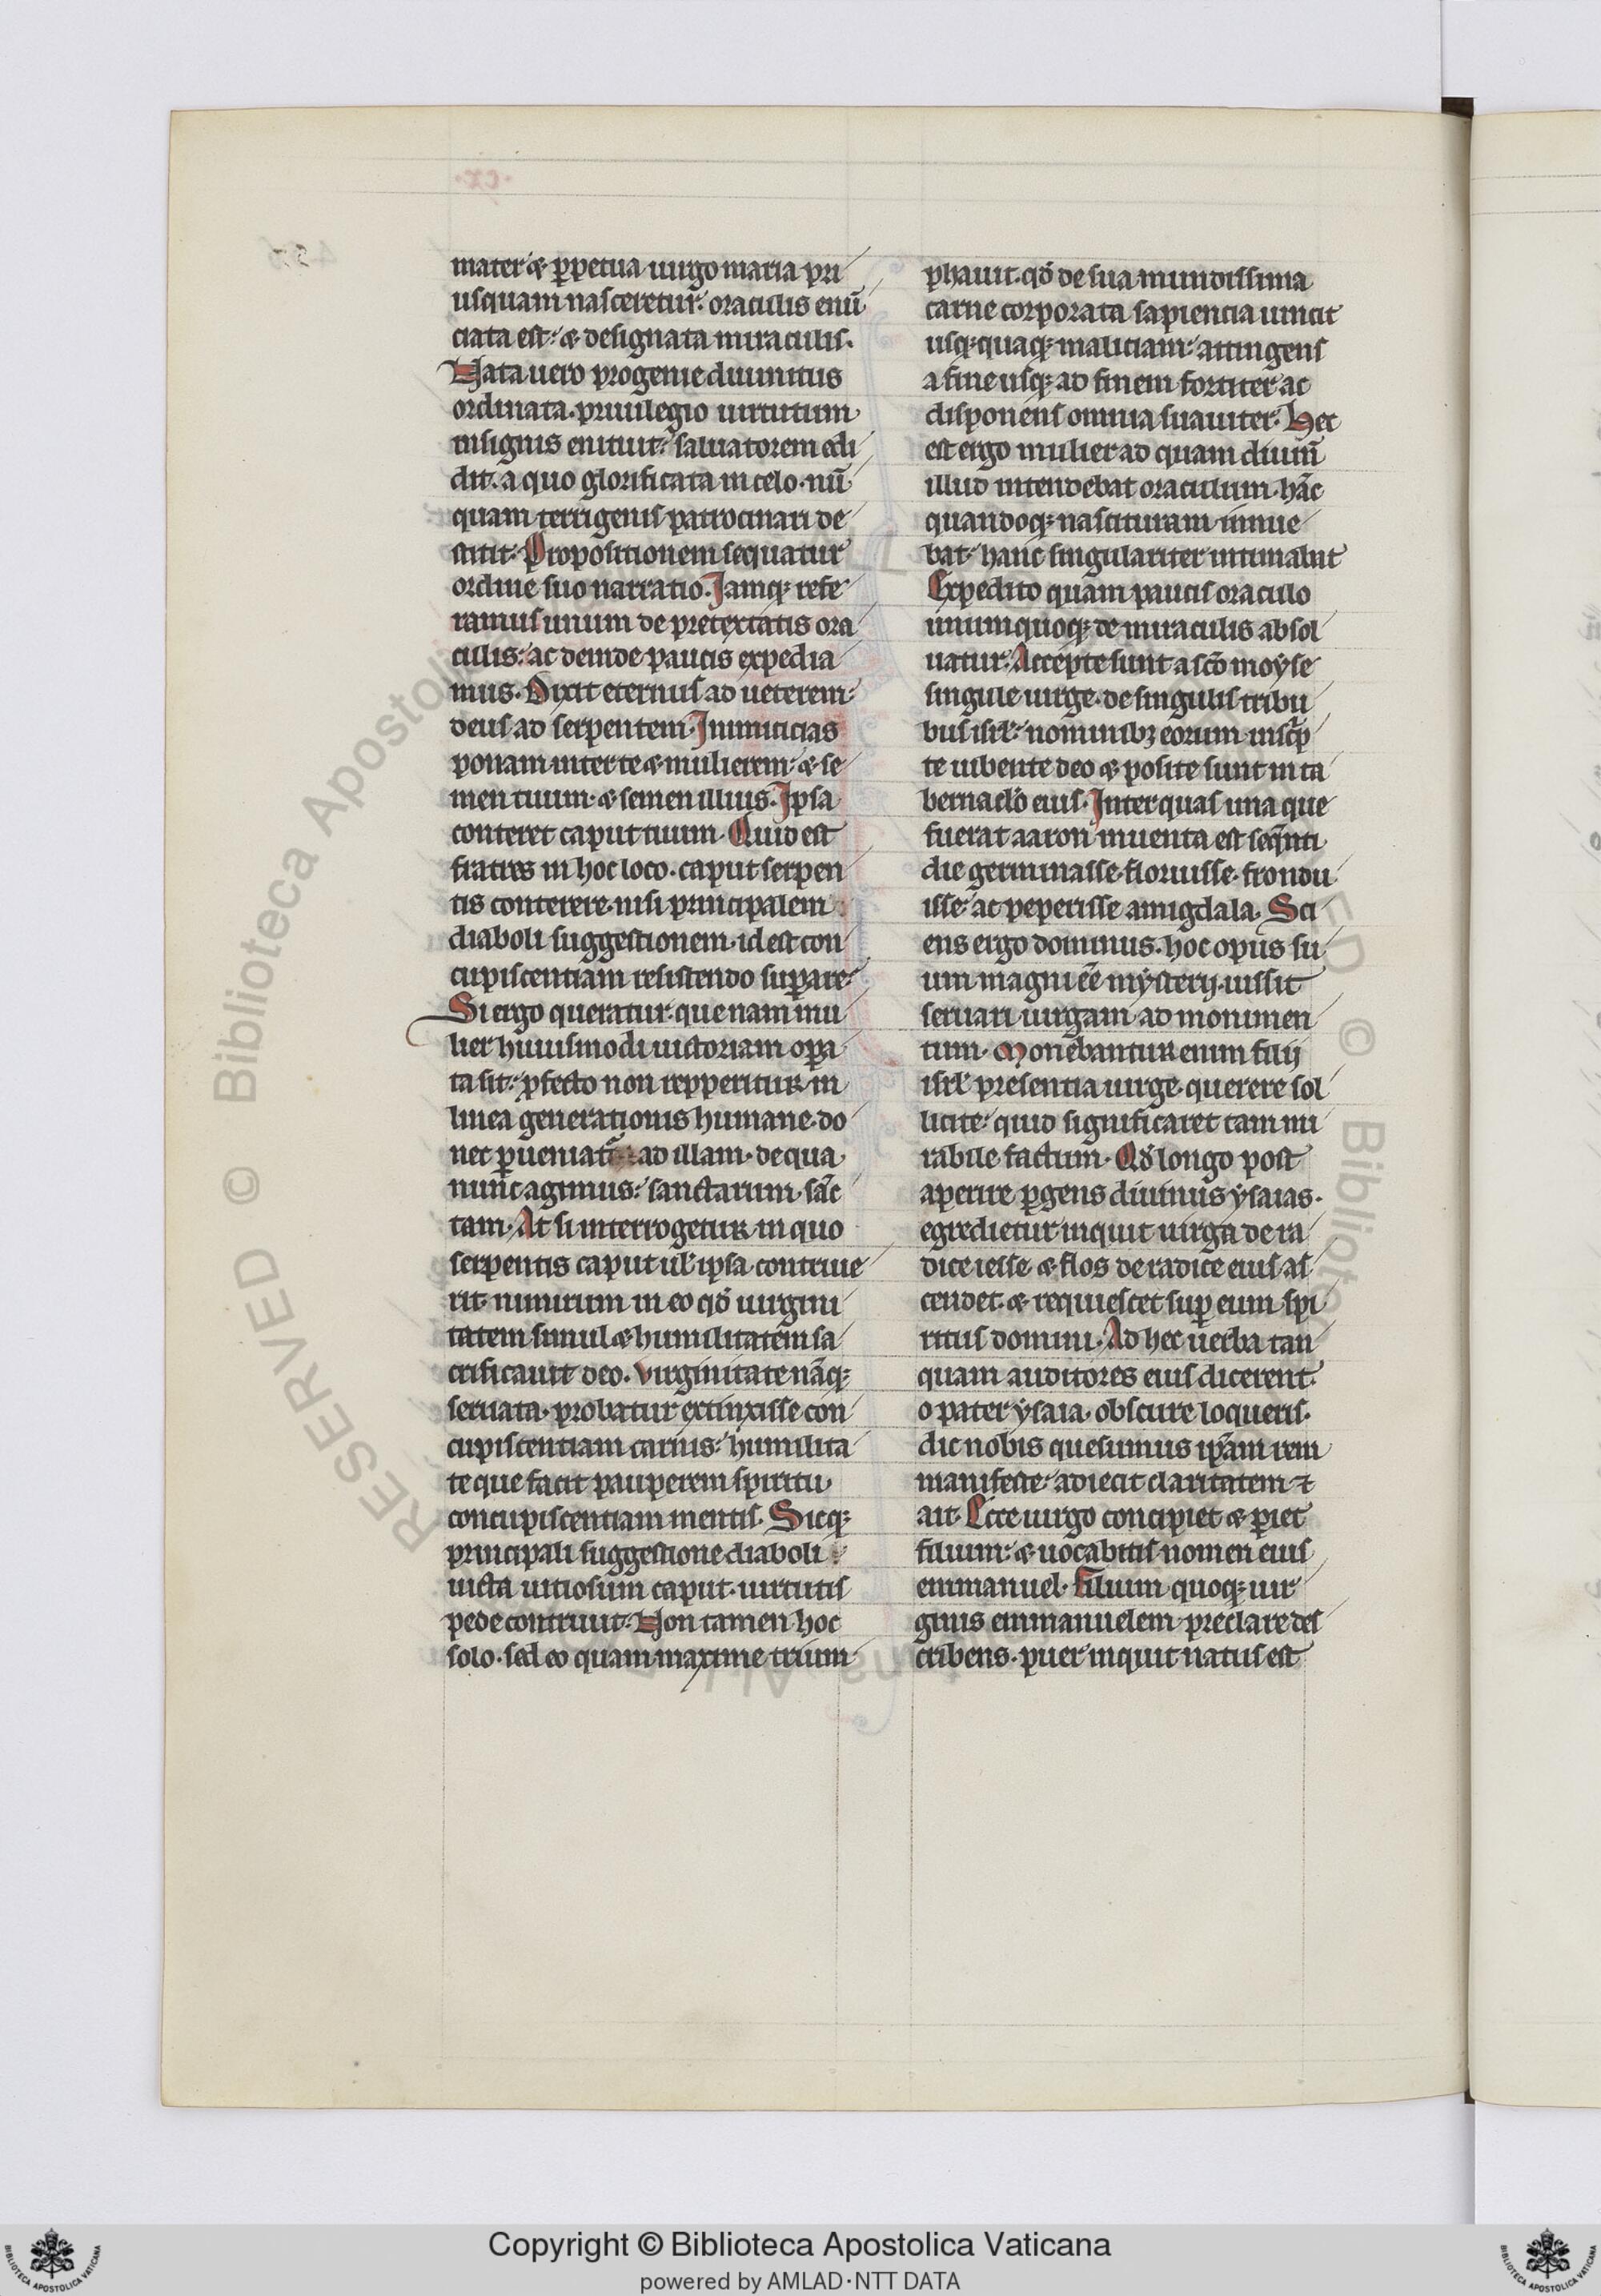 mater & ꝑpetua uirgo maria pri
usquam nasceretur. oraculis enū
ciata est. & designata miraculis.
Nata uero progenie diuinitus
ordinata. priuilegio uirtutum
insignis enituit. saluatorem edi
dit. a quo glorificata in celo. nū
quam terrigenis patrocinari de
stitit. Propositionem sequatur
ordine suo narratio. Jamq; refe
ramus unum de pretextatis ora
culis. ac deinde paucis expedia
mus. Dixit eternus ad ueterem.
deus ad serpentem. Inimicicias
ponam inter te & mulierem. & se
men tuum. & semen illius. Ipsa
conteret caput tuum. Quid est
fratres in hoc loco. caput serpen
tis conterere. nisi principalem
diaboli suggestionem. id est con
cupiscentiam resistendo suꝑare.
Si ergo queratur. quenam mu
lier huiusmodi uictoriam oꝑa
ta sit. ꝓfecto non repperitur in
linea generationis humane. do
nec ꝑueniat᷑ ad illam. de qua
nunc agimus. sanctarum sāc
tam. At si interrogetur in quo
serpentis caput ul' ipsa contriue
rit. nimirum in eo qđ uirgini
tatem simul & humilitatem sa
crificauit deo. Virginitate nāq;
seruata. probatur extinxisse con
cupiscentiam carnis. humilita
te que facit pauperem spiritu.
concupiscentiam mentis. Sicq;
principali suggestione diaboli
uicta uitiosum caput. uirtutis
pede contriuit. Non tamen hoc
solo. sed eo quam maxime trium
phauit. qđ de sua mundissima
carne corporata sapiencia uincit
usq; quaq; maliciam. attingens
a fine usq; ad finem fortiter ac
disponens omnia suauiter. Hec
est ergo mulier ad quam diuinū
illud intendebat oraculum. hāc
quandoq; nascituram innue
bat. hanc singulariter intimabat
Expedito quam paucis oraculo
unum quoq; de miraculis absol
uatur. Accepte sunt a scō moyse
singule uirge. de singulis tribu
bus isrl'. nominib; eorum inscͥp
te iubente deo & posite sunt in ta
bernaclo eius. Inter quas una que
fuerat aaron inuenta est seq̄nti
die germinasse. floruisse. frondu
isse. ac peperisse amigdala. Sci
ens ergo dominus. hoc opus su
um magni eē mysterij. iussit
seruari uirgam ad monimen
tum. Monebantur enim filij
isrl' presentia uirge. querere sol
licite. quid significaret tam mi
rabile factum. Qđ longo post
aperire ꝑgens diuinus ysaias.
egredietur inquit uirga de ra
dice iesse & flos de radice eius as
cendet. & requiescet suꝑ eum spi
ritus domini. Ad hec uerba tan
quam auditores eius dicerent.
o pater ysaia. obscure loqueris.
dic nobis quesumus ip̄am rem
manifeste. adiecit claritatem ⁊
ait. Ecce uirgo concipiet & ꝑiet
filium. & uocabitis nomen eius
emmanuel. Filium quoq; uir
ginis emmanuelem. preclare des
cribens. puer inquit natus est
Copyright © Biblioteca Apostolica Vaticana
powered by AMLAD·NTT DATA